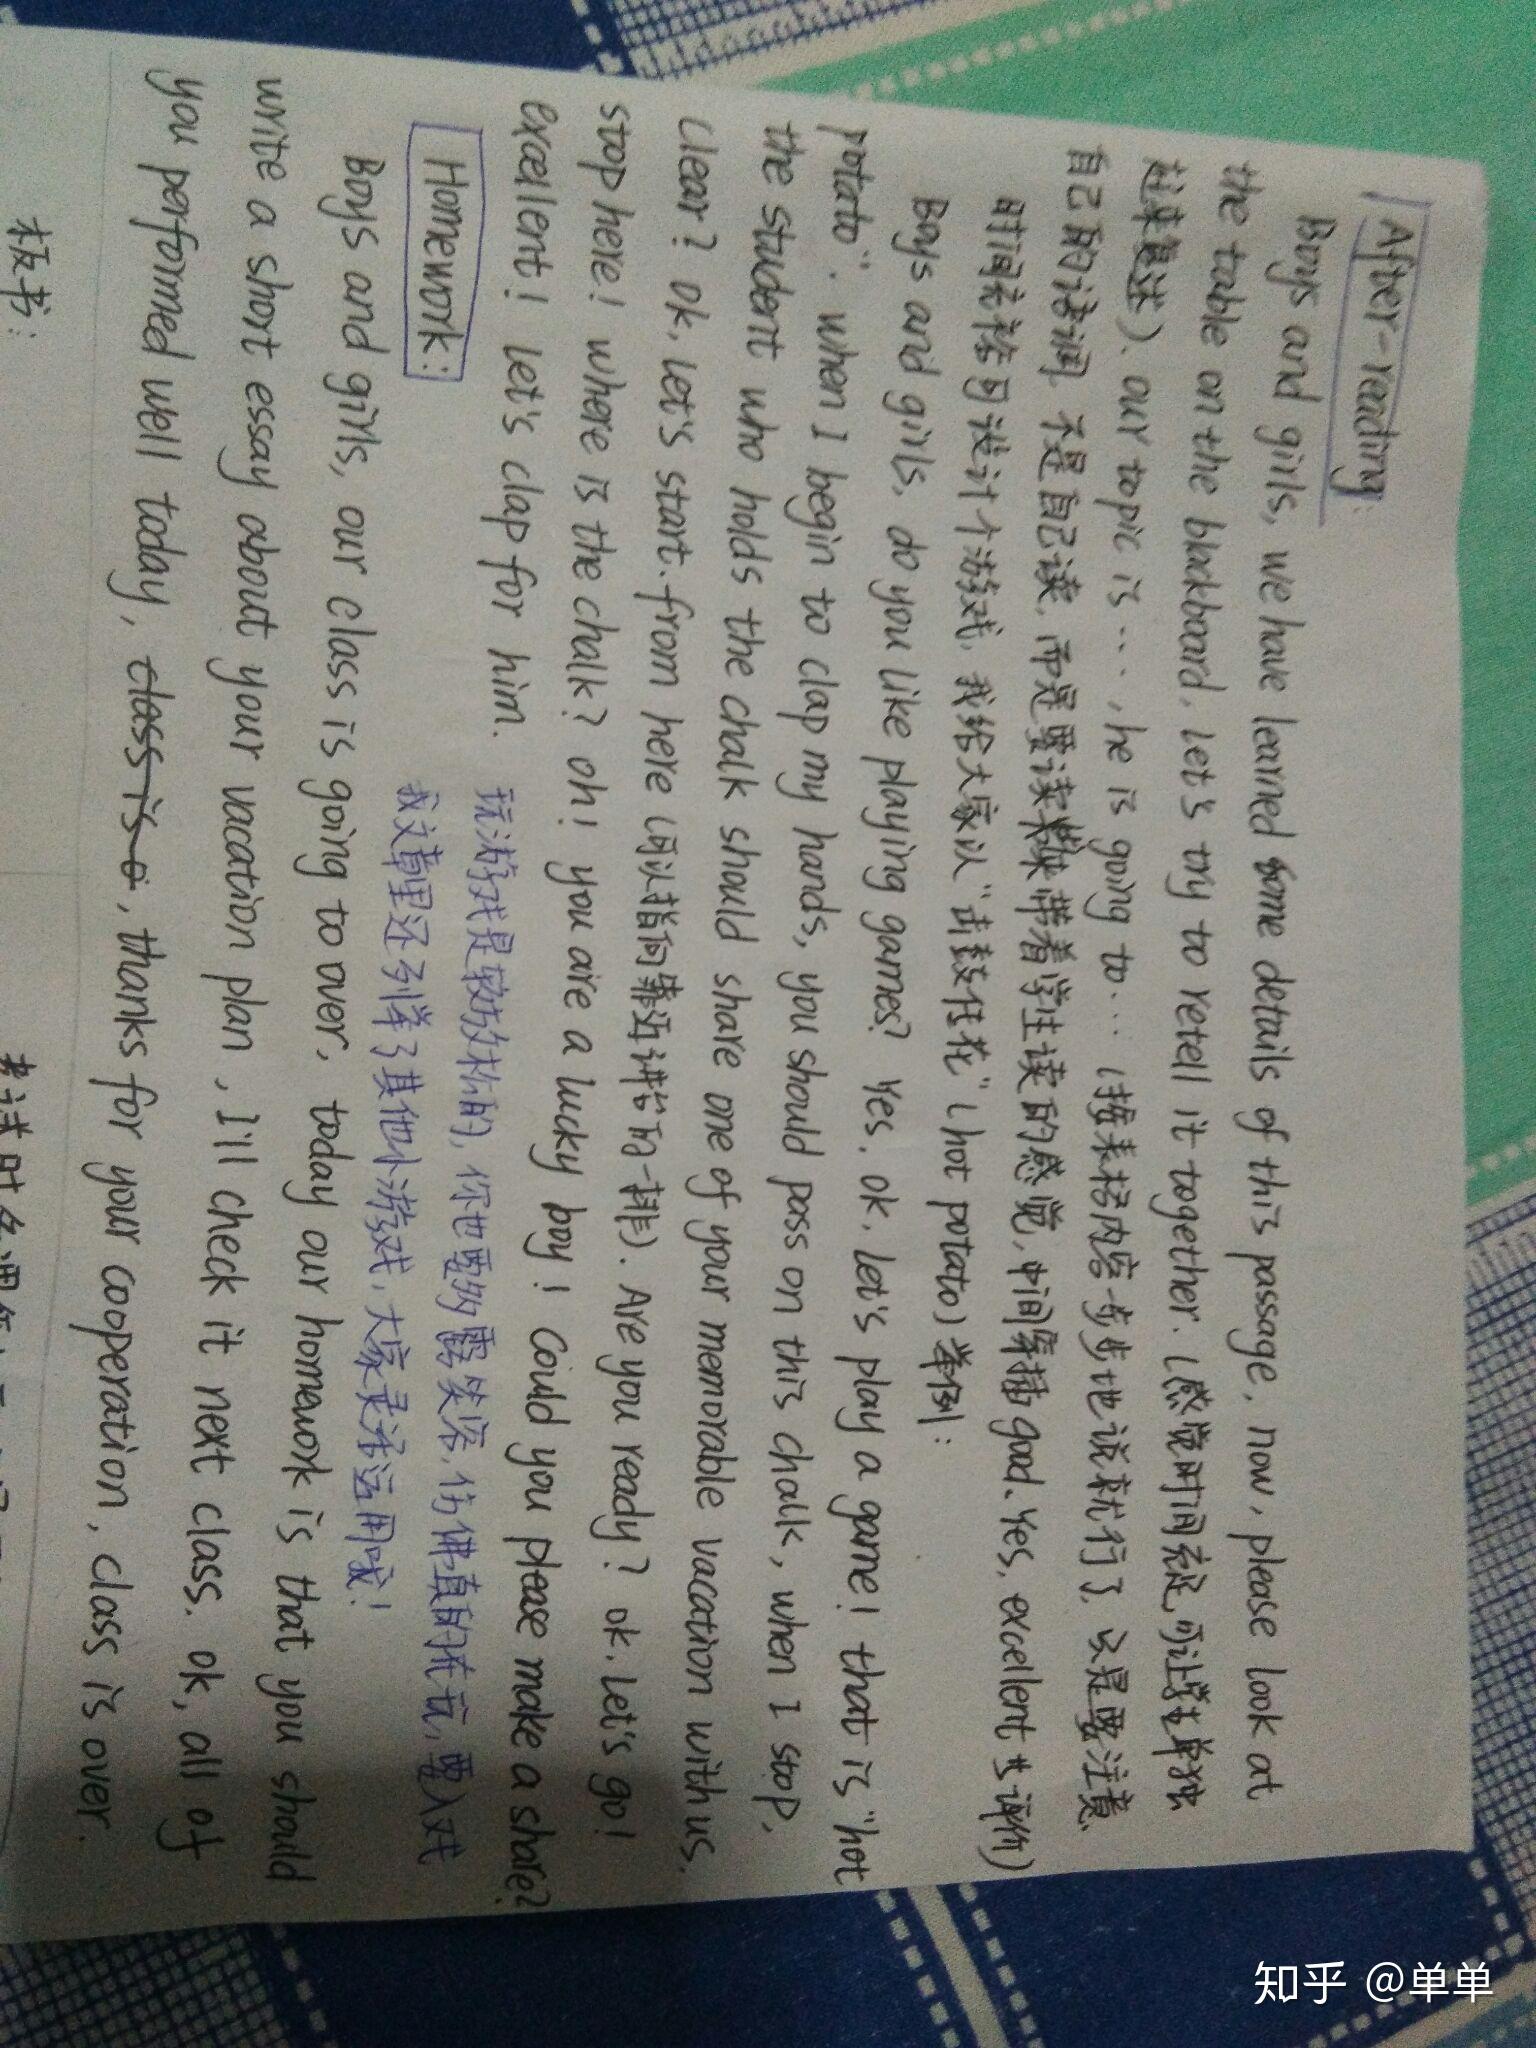 After-reading:
Boys and girls, we have learned some details of this passage, now, please look at
the table on the blackboard. Let's try to retell it together. (感觉时间充足,可让学生单独
起来复述). our topic is...., he is going to... (按表格内容一步步地说就行了,只是要注意
自己的语调 不是自己读,而是要读 带着学生读的感觉,中间穿插good. Yes, excellent 等评价)
时间充裕可设计个游戏,我给大家以"击鼓传花"(hot potato)举例:
Boys and girls, do you like playing games? Yes. ok. let's play a game! that is "hot
potato". when I begin to clap my hands, you should pass on this chalk, when I stop,
the student who holds the chalk should share one of your memorable vacation with us.
clear? ok. let's start. from here (可以指向靠近讲台的一排). Are you ready? ok. Let's go!
stop here! where is the chalk? oh! you are a lucky boy! Could you please make a share?
excellent! let's clap for him.
玩游戏是较好加分的,你也要多露笑容,仿佛真的在玩,要入戏
我文章里还列举了其他小游戏,大家灵活运用哦!
Homework:
Boys and girls, our class is going to over, today our homewok is that you should
write a short essay about your vacation plan, I'll check it next class. ok, all of
you performed well today, class is o, thanks for your cooperation, class is over.
板书:
知乎 @单单